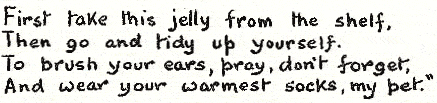 First take this jelly from the shelf,
Then go and tidy up yourself.
To brush your ears, pray, don't forget,
And wear your warmest socks, my pet."